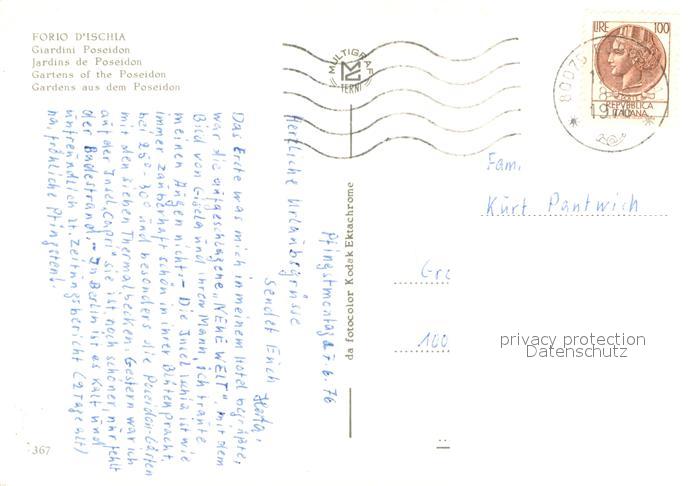 FORIO D'ISCHIA
Giardini Poseidon
Jardins de Poseidon
Gartens of the Poseidon
Gardens aus dem Poseidon
MULTIGRAF
TERNI
LIRE 100
REPVBBLICA
ITALIANA
80075
Pfingstmontag 7.6.76
Herzliche Urlaubsgrüsse
sendet Euch Herta.
Das Erste was mich in meinem Hotel begrüßte,
war die aufgeschlagene "NEUE WELT" mit dem
Bild von Gisela und ihrem Mann, ich traute
meinen Augen nicht. – Die Insel Ischia ist wie
immer zauberhaft schön in ihrer Blütenpracht,
bei 25°-30° und besonders die Poseidon-Gärten
mit den sieben Thermalbecken. Gestern war ich
auf der Insel "Capri" sie ist noch schöner, nur fehlt
der Badestrand. – In Berlin ist es kalt und
unfreundlich lt. Zeitungsbericht (2 Tage alt)
na, fröhliche Pfingsten!
da fotocolor Kodak Ektachrome
Fam.
Kurt Pantwich
Gre
100
privacy protection
Datenschutz
367